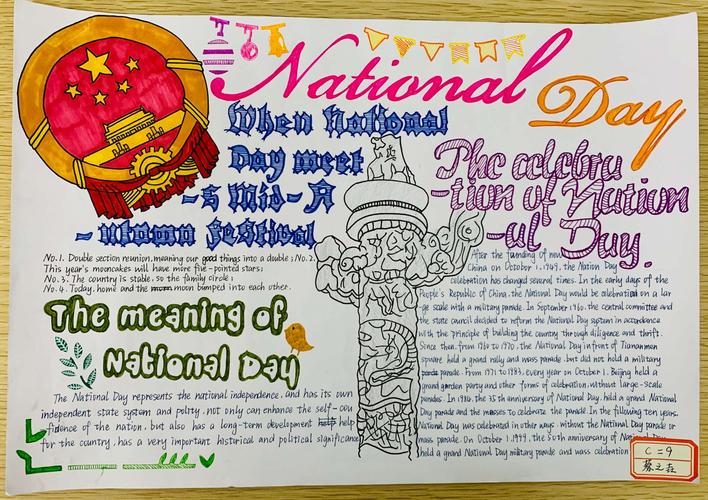 National
Day
When National
Day meet
-s Mid-A
-utumn festival
No.1. Double section reunion, meaning our good things into a double; No.2.
This year's mooncakes will have more five-pointed stars;
No.3. The country is stable, so the family circle;
No.4. Today, home and the moon bumped into each other.
The meaning of
National Day
The National Day represents the national independence, and has its own
independent state system and polity, not only can enhance the self-con
fidence of the nation, but also has a long-term development help
for the country, has a very important historical and political significance
The celebra
-tion of Nation
-al Day.
After the founding of new
China on October 1, 1949, the Nation Day
celebration has changed several times. In the early days of the
People's Republic of China, the National Day would be celebration on a lar
-ge scale with a military parade. In September 1960, the central committee and
the state council decided to reform the National Day system in accordance
with the principle of building the country through diligence and thrift.
Since then, from 1960 to 1970, the National Day in front of Tiananmen
square held a grand rally and mass parade, but did not hold a military
parade. From 1971 to 1983, every year on October 1, Beijing held a
grand garden party and other forms of celebration, without large-scale
parades. In 1984, the 35th anniversary of National Day, held a grand National
Day parade and the masses to celebrate the parade. In the following ten years,
National Day was celebrated in other ways, without the National Day parade or
mass parade. On October 1, 1999, the 50th anniversary of National Day
held a grand National Day military parade and mass celebration
C=9